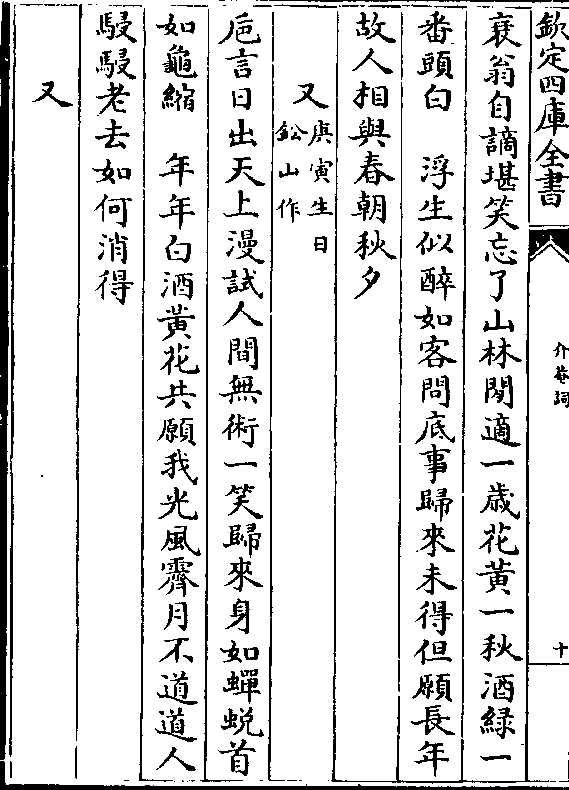 欽定四庫全書
介菴詞
十
衰翁自謫堪笑忘了山林閒適一歲花黃一秋酒綠一
番頭白　浮生似醉如客問底事歸來未得但願長年
故人相與春朝秋夕
又庚寅生日鉛山作
巵言日出天上漫試人間無術一笑歸來身如蟬蛻首
如龜縮　年年白酒黃花共願我光風霽月不道道人
駸駸老去如何消得
又